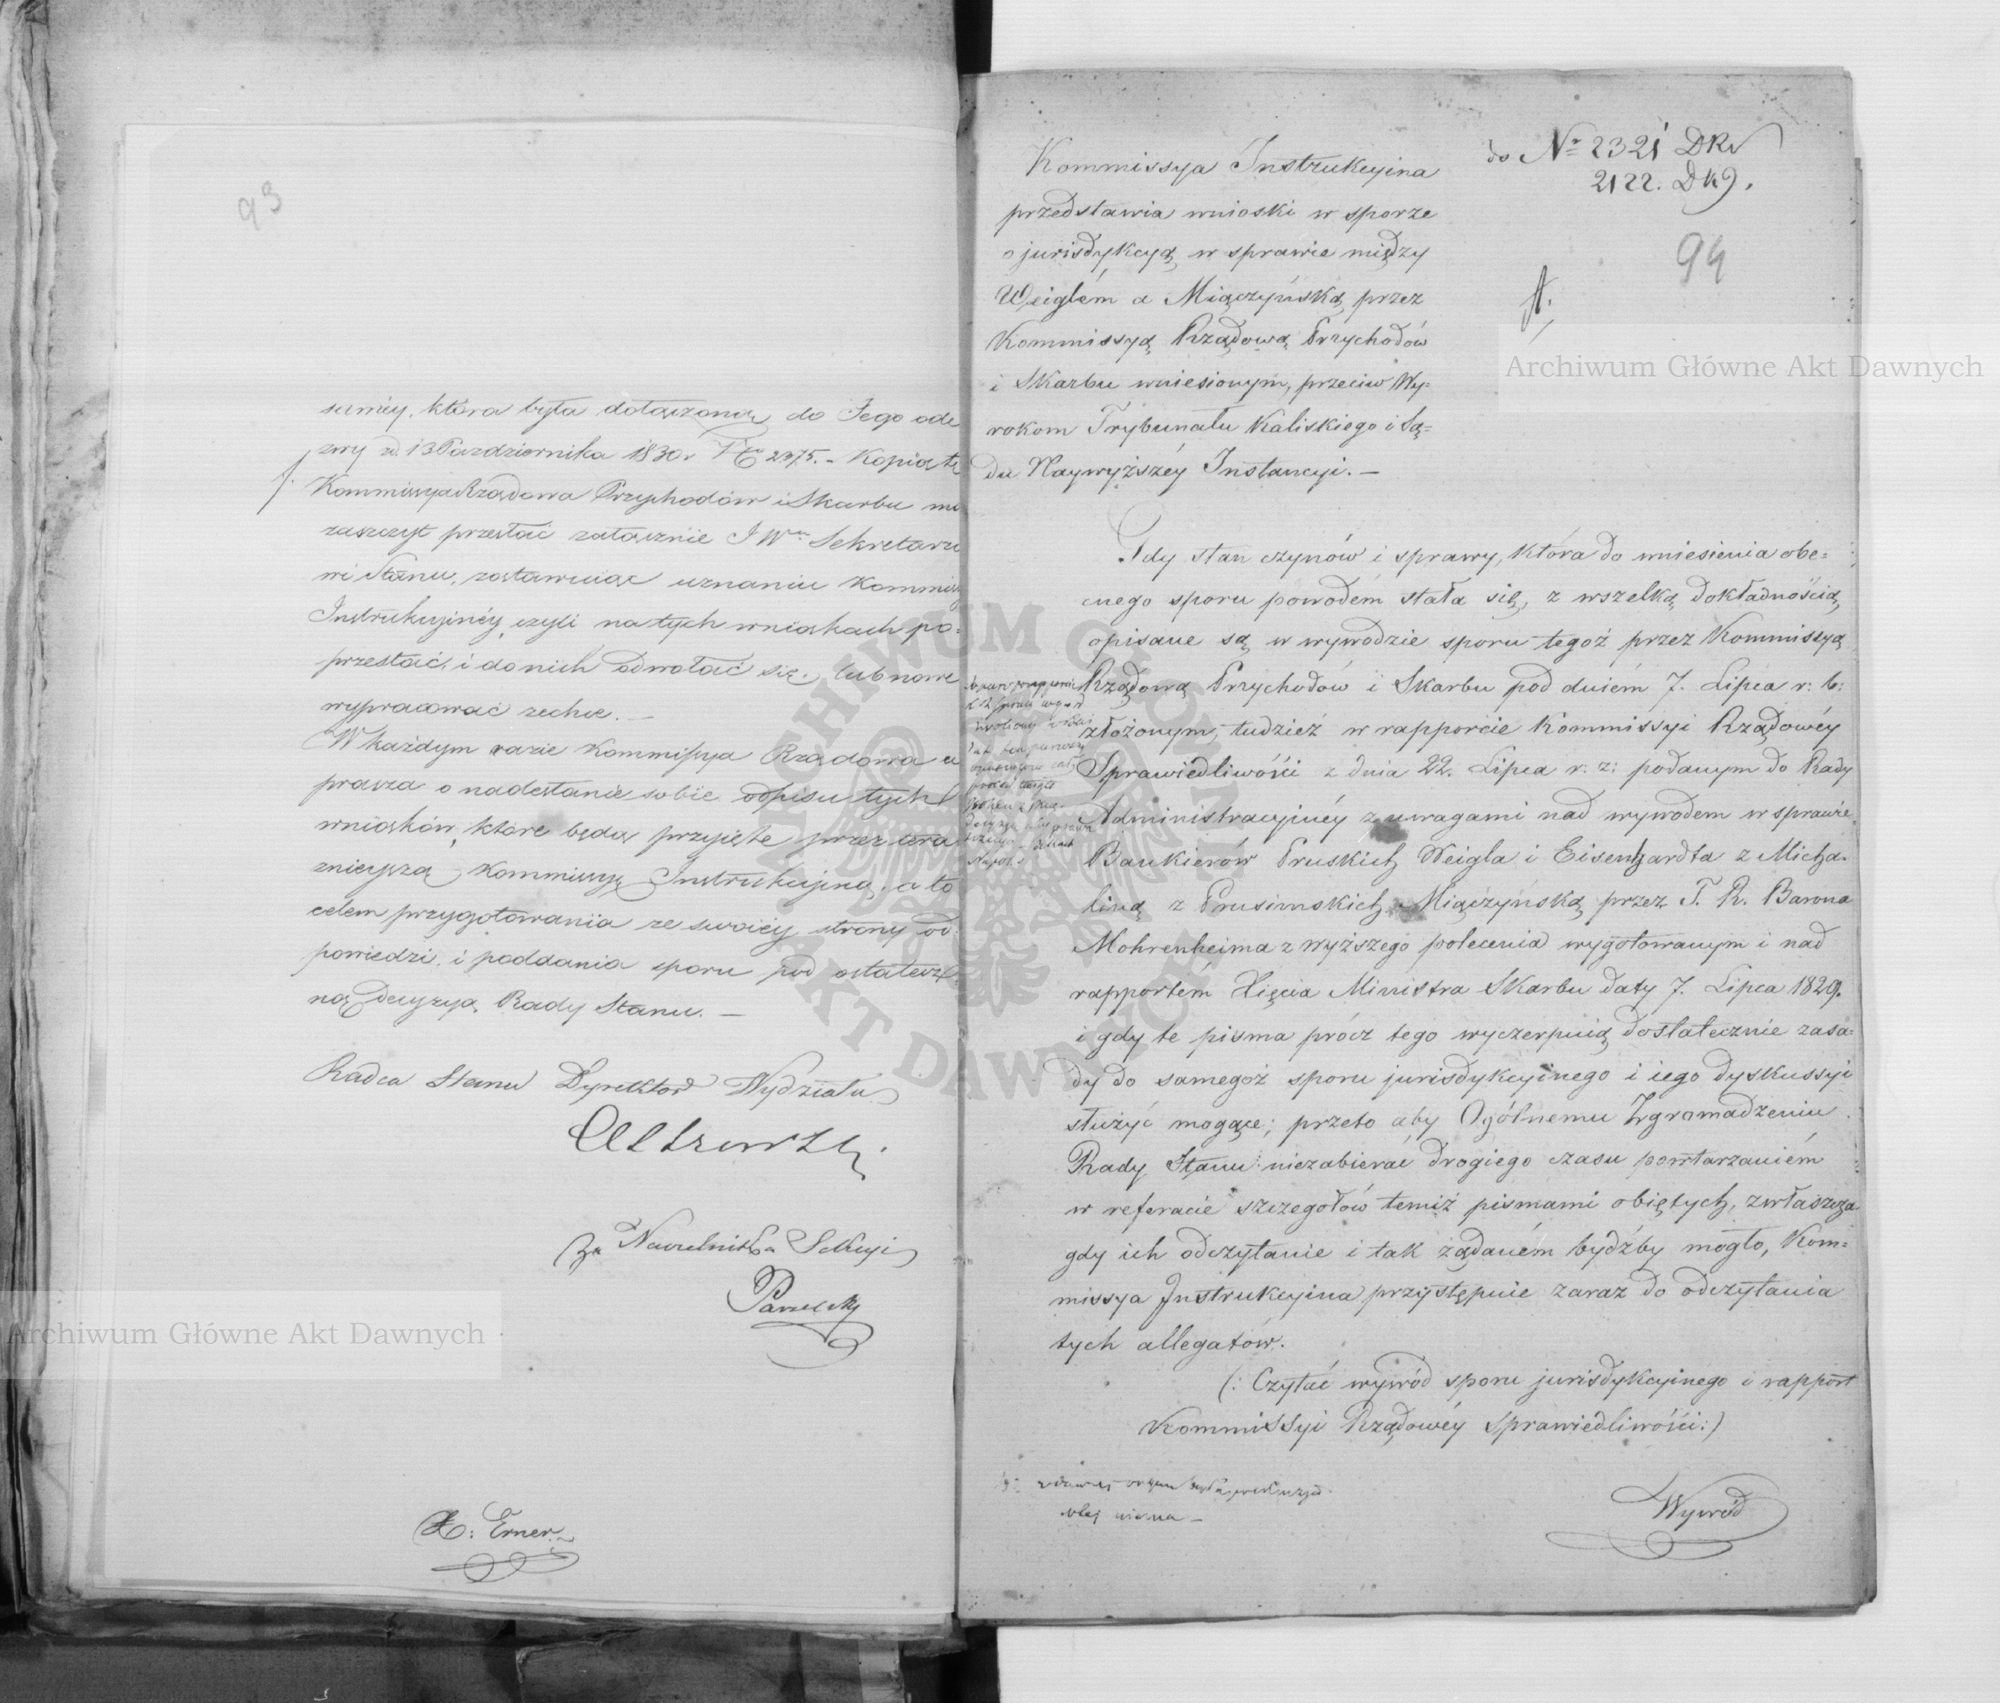 93
samey, która była dołączoną do Jego ode
zwy d. 13 Października 1830 r. No 2375. – Kopią tę
Kommissya Rządowa Przychodów i Skarbu ma
zaszczyt przesłać załącznie JWmu Sekretarzo
wi Stanu, zostawując uznaniu Kommissyi
Instrukcyinéy, czyli na tych wnioskach po-
przestać, i do nich odwołać się, lub nowe
wypracować zechce. –
W każdym razie Kommissya Rządowa u
prasza o nadesłanie sobie odpisu tych
wniosków, które będą przyjęte przez
Kommissyę Instrukcyiną, a to
celem przygotowania ze swoiéy strony od
powiedzi, i poddania sporu pod ostatecz
ną decyzyą Rady Stanu. –
Radca Stanu Dyrektor Wydziału
Za Naczelnika Sekcyi
Erner
do Nr 2321 DKv
2122. DKg.
94
A.
Kommissya Instrukcyina
przedstawia wnioski w sporze
o jurisdykcyą w sprawie między
Weiglém a Miączyńską przez
Kommissyą Rządową Przychodów
i Skarbu wniesionym, przeciw Wy-
rokom Trybunału Kaliskiego i Są-
du Naywyższéy Instancyi. –
Gdy stan czynów i sprawy, która do wniesienia obe-
cnego sporu powodém stała się, z wszelką dokładnością
opisane są w wywodzie sporu tegoż przez Kommissyą
Rządową Przychodów i Skarbu pod dniém 7. Lipca r: b:
złożonym, tudzież w rapporcie Kommissyi Rządowéy
Sprawiedliwości z dnia 22. Lipca r: z: podanym do Rady
Administracyinéy z uwagami nad wywodem w sprawie
Bankierów Pruskich Weigla i Eisenhardta z Micha-
liną z Prusimskich Miączyńską przez T. R. Barona
Mohrenheima z wyższego polecenia wygotowanym i nad
rapportém Xięcia Ministra Skarbu daty 7. Lipca 1829.
i gdy te pisma prócz tego wyczerpuią dostatecznie zasa-
dy do samegoż sporu jurisdykcyinego i iego dyskussyi
służyć mogące; przeto aby Ogólnemu Zgromadzeniu
Rady Stanu niezabierać drogiego czasu powtarzaniém
w referacie szczegółów temiż pismami obiętych, zwłaszcza
gdy ich odczytanie i tak żądaném bydźby mogło, Kom-
missya Instrukcyina przystępuie zaraz do odczytania
tych allegatów.
(: Czytać wywód sporu jurisdykcyinego i rapport
Kommissyi Rządowéy Sprawiedliwości :)
Wywód
Archiwum Główne Akt Dawnych
Archiwum Główne Akt Dawnych
ARCHIWUM GŁÓWNE AKT DAWNYCH